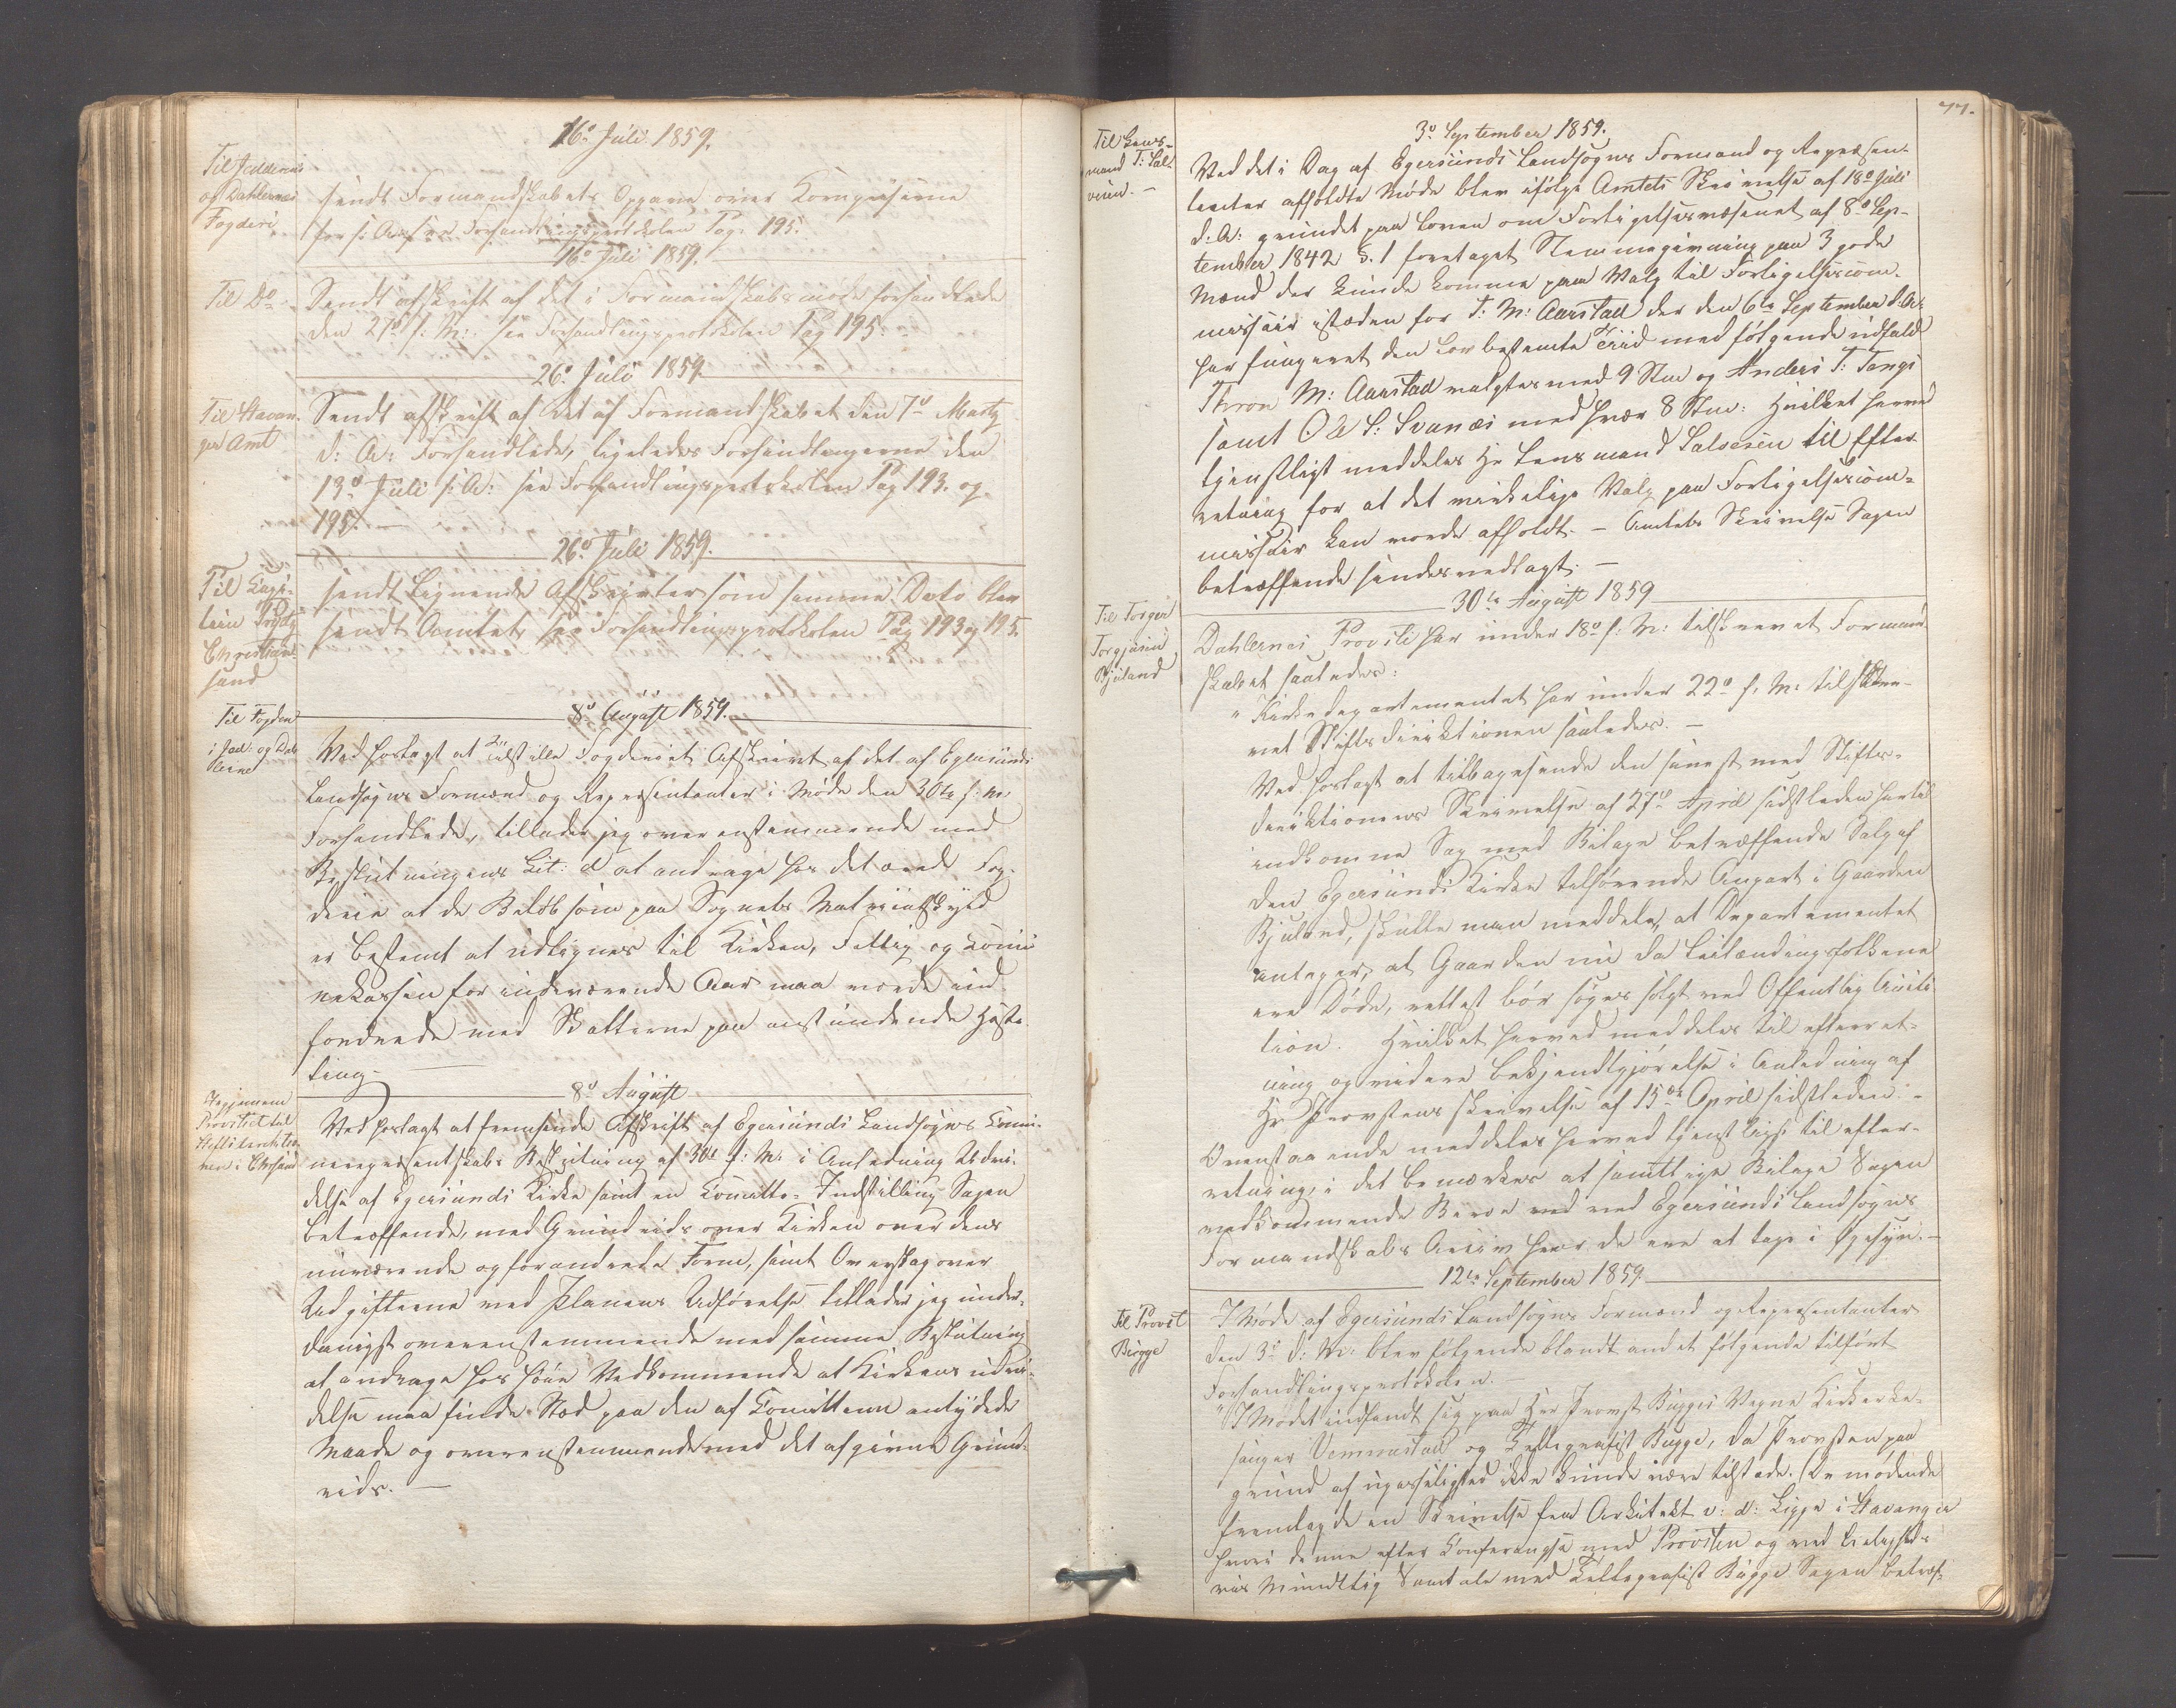 16de Juli 1859.
Til Jedderens
og Dahlernes
Fogderi
sendt Formandskabets Opgave over Kornpriserne
for f: Aar see Forhandlingsprotokolen Pag: 195.
16de Juli 1859.
Til Do
Sendt afskrift af det i Formandskabsmøde forhandlede
den 27de f: M: see Forhandlingsprotokolen Pag 195.
26de Juli 1859.
Til Stavan-
ger Amt
Sendt afskrift af det af Formandskabet den 7de Martz
d: A: Forhandlede, ligeledes Forhandlingerne den
13de Juli s: A: see Forhandlingsprotokolen Pag 193. og
195. —
26de Juli 1859.
Til Kapi-
tein
Christian-
sand
sendt lignende Afskrifter som samme Dato blev
sendt Amtet, see Forhandlingsprotokolen Pag 193 og 195.
8de August 1859.
Til Fogden
i Jæd: og Dah
lerne
Ved hoslagt at tilstille Fogderiet Afskrivt af det af Egersunds
Landsogns Formænd og Repræsentanter i Møde den 30te f: M:
Forhandlede, tillader jeg overenstemmende med
Beslutningens Lit: d at andrage hos det ærede Fog-
derie at de Beløb som paa Sognets Matriculskyld
er bestemt at udlignes til Kirken, Fattig og Comu
nekassen for indeværende Aar maa worde ind
fordrede med Skatterne paa anstundende Høste-
ting. —
8de August
Igjennem
Provstiet til
Stiftsdirektio-
nen i Chrsand
Ved hoslagt at fremsende Afskrift af Egersunds Landsogns Comu-
nerepresentskabs Beslutning af 30te f: M: i Anledning Udvi-
delse af Egersunds Kirke samt en Comitte-Indstilling Sagen
betræffende, med Grundrids over Kirken over dens
nuværende og forandrede Form, samt Overslag over
Udgifterne ved Planens Udførelse tillader jeg under-
danigst overenstemmende med samme Beslutning
at andrage hos høie Vedkommende at Kirkens udvi-
delse maa finde Sted paa den af Comitteen antydede
Maade og overenstemmende med det afgivne Grund-
rids. —
77.
3de September 1859.
Til Lens-
mand T: Sal-
vesen. —
Ved det i Dag af Egersunds Landsogns Formænd og Repræsen-
tanter afholdte Møde blev ifølge Amtets Skrivelse af 18de Juli
d: A: grundet paa Loven om Forligelsesvæsenet af 8de Sep-
tember 1842 §. 1 foretaget Stemmegivning paa 3 gode
Mænd der kunde komme paa Valg til Forligelsescom-
missair isteden for T: M: Aarstad der den 6te September d: A:
har fungeret den Lovbestemte Tiid med følgende udfald
Thron M: Aarstad valgtes med 9 Stm og Anders T: Tengs
samt Ole S: Svanæs med hver 8 Stm: Hvilket herved
tjenstligst meddeles Hr Lensmand Salvesen til Efter-
retning for at det virkelige Valg paa Forligelsescom-
missair kan worde afholdt. — Amtets Skrivelse Sagen
betræffende sendes vedlagt. —
30te August 1859
Til Torger
Torgjusen
Bjuland
Dahlernes Provsti har under 18de f: M: tilskrevet Formand-
skabet saaledes:
"Kirkedepartementet har under 22de f. M: tilskre-
vet Stiftsdirektionen saaledes. —
Ved hoslagt at tilbagesende den senest med Stifts-
direktionens Skrivelse af 27de April sidstleden hertil
indkomne Sag med Bilage betræffende Salg af
den Egersunds Kirke tilhørende Anpart i Gaarden
Bjuland, skulle man meddele, at Departementet
antager, at Gaarden nu da Leilændingsfolkene
ere Døde, rettest bør søges solgt ved Offentlig Auck-
tion. Hvilket herved meddeles til efterret-
ning og videre bekjendtgjørelse i Anledning af
Hr Provstens skrivelse af 15de April sidstleden. –
Ovenstaaende meddeles herved tjenstligst til efter-
retning, i det bemærkes at samtlige Bilage Sagen
vedkommende Beroe ved Egersunds Landsogns
Formandskabs Archiv hvor de ere at tage i Øiesyn. —
12te September 1859.
Til Provst
Bugge
I Møde af Egersunds Landsogns Formænd og Repræsentanter
den 3de d: M: blev følgende blandt andet følgende tilført
Forhandlingsprotokolen. —
"I Mødet indfandt sig paa Herr Provst Bugges Vegne Kirkesanger
Vemmestad og Tellegrafist Bugge, da Provsten paa
grund af upasselighed ikke kunde være tilstede. De mødende
fremlagde en Skrivelse fra Arkitekt v: d: Lippe i Stavanger
hvori denne efter Conferangse med Provsten og ved Leiligheds-
vis Mundtlig Samtale med Tellegrafist Bugge Sagen betræf-